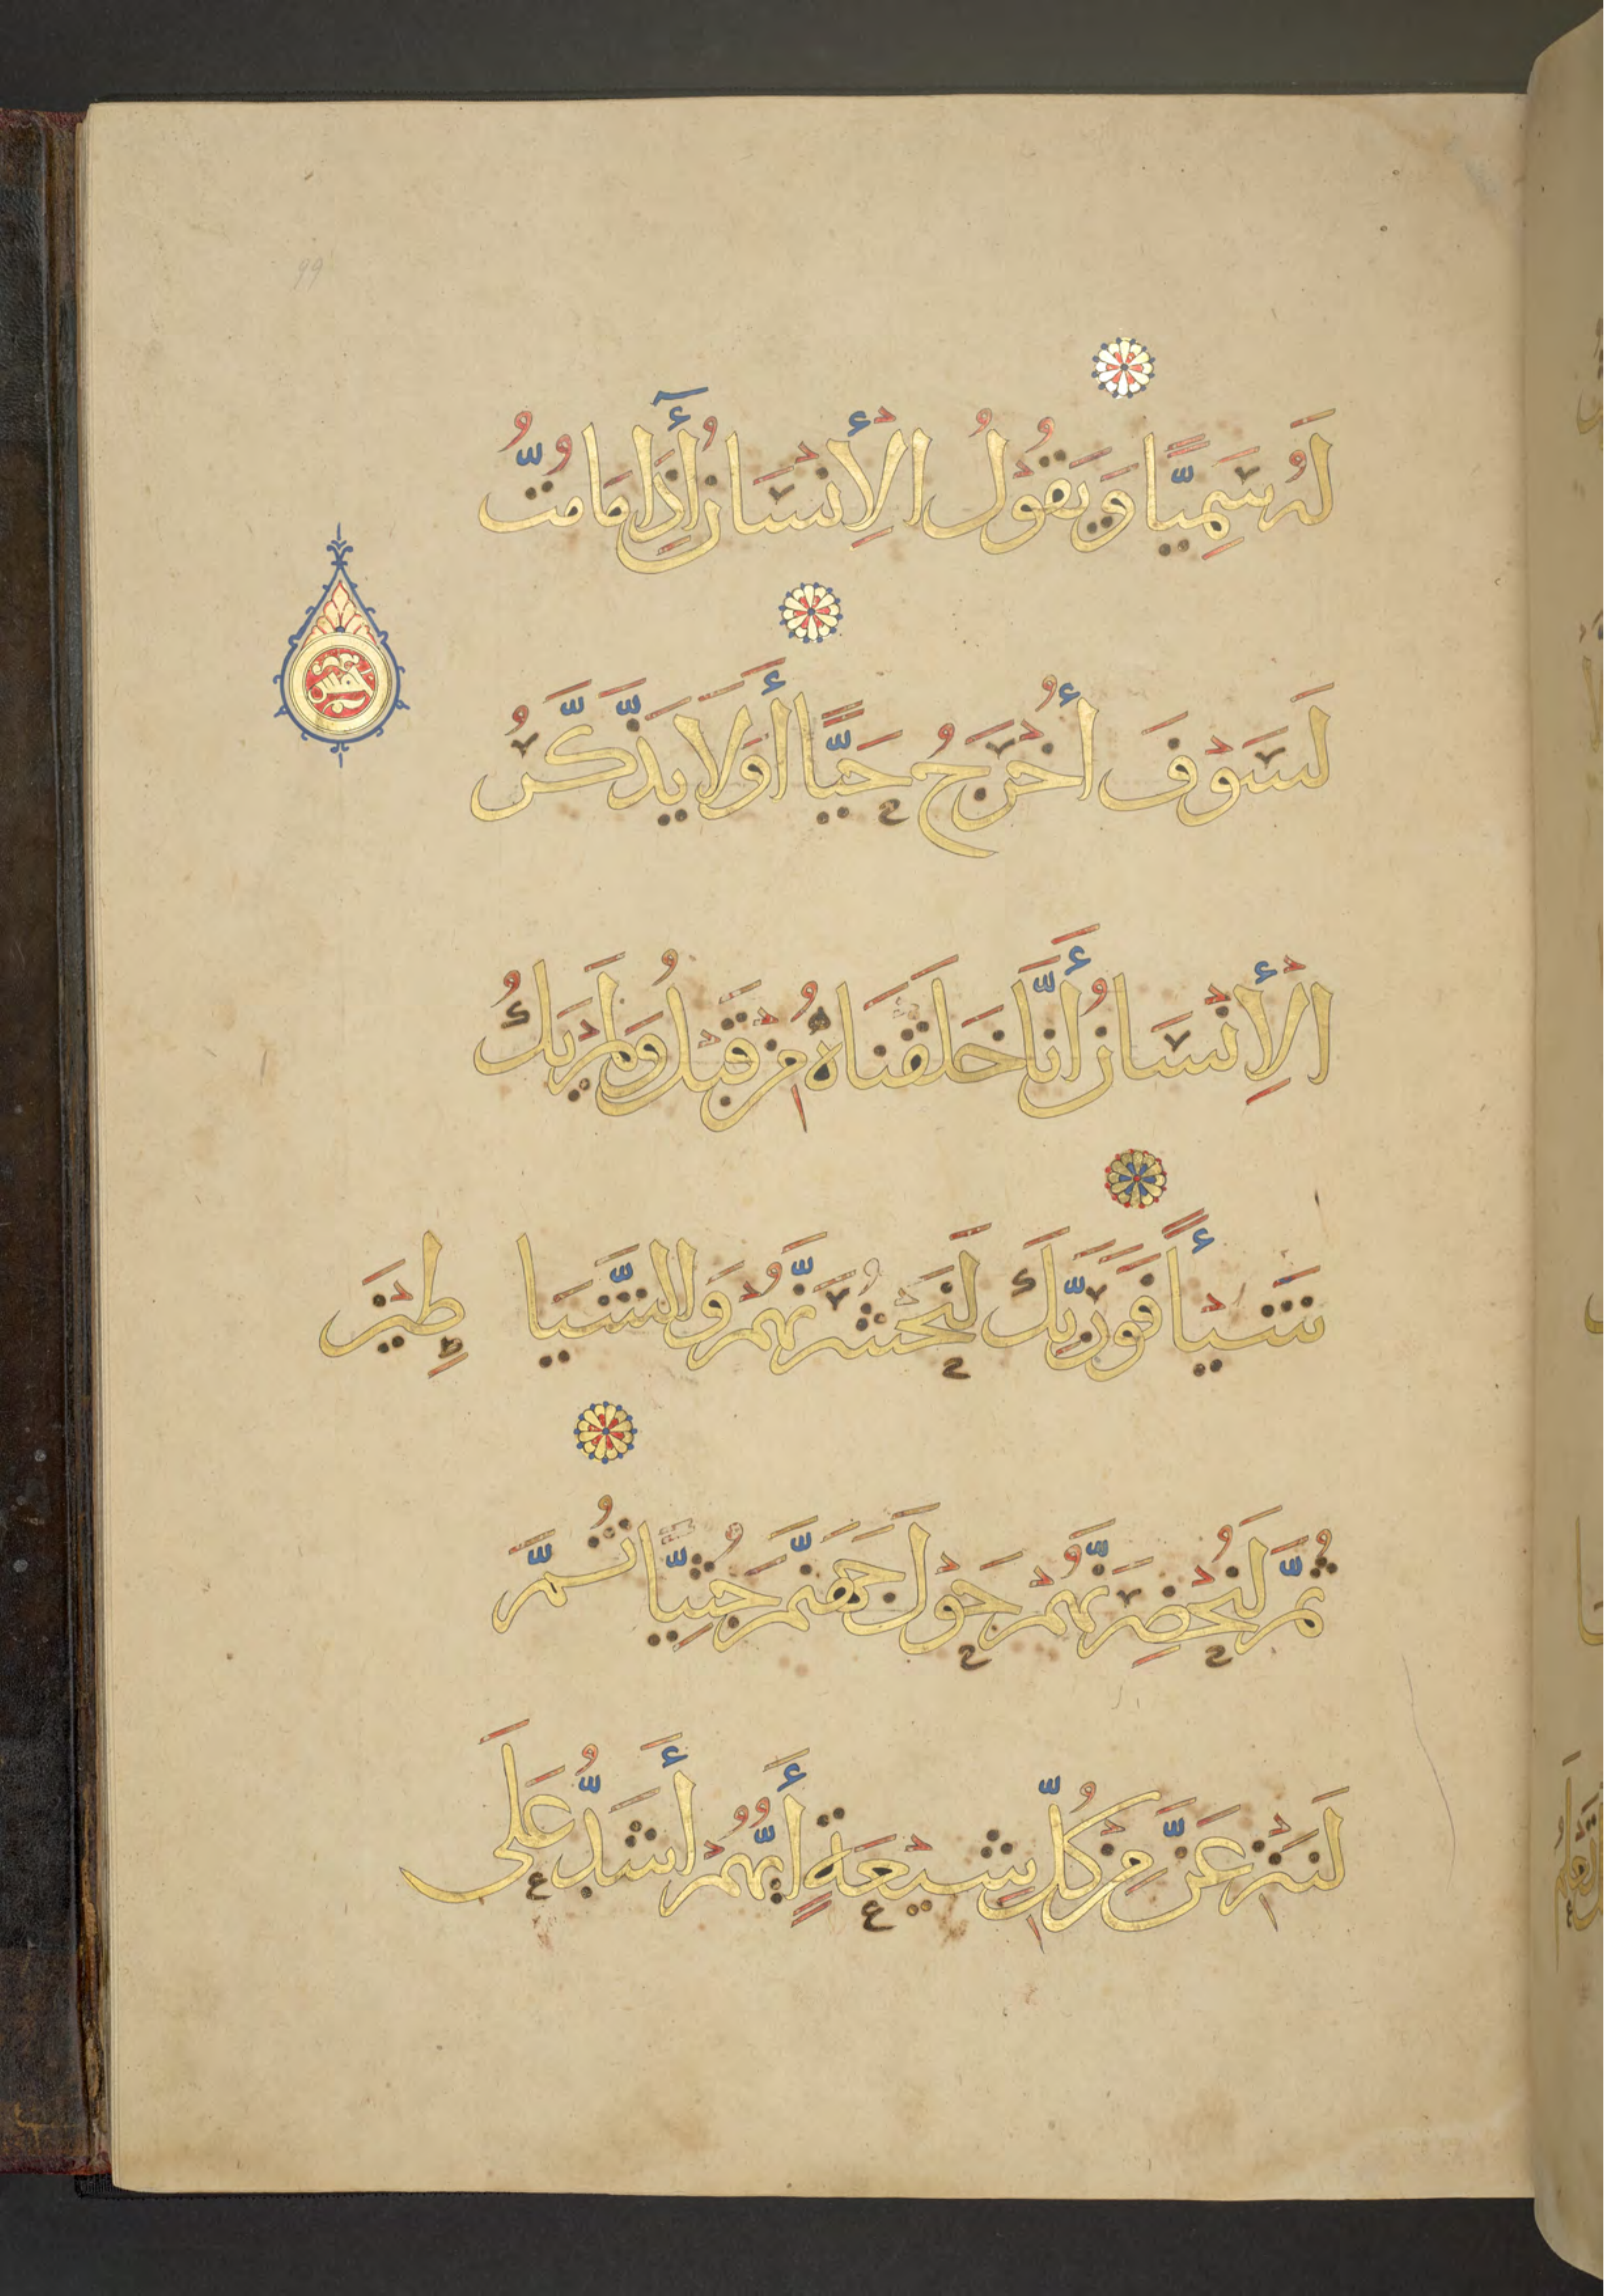 لَهُ سَمِيًّا وَيَقُولُ الْإِنْسَانُ أَإِذَا مَا مُتُّ
لَسَوْفَ أُخْرَجُ حَيًّا أَوَلَا يَذَّكَّرُ
الْإِنْسَانُ أَنَّا خَلَقْنَاهُ مِنْ قَبْلُ وَلَمْ يَكُ
شَيْأً فَوَرَبِّكَ لَنَحْشُرَنَّهُمْ وَالشَّيَاطِيْنَ
ثُمَّ لَنُحْضِرَنَّهُمْ حَوْلَ جَهَنَّمَ جُثِيًّا ثُمَّ
لَنَنْزِعَنَّ مِنْ كُلِّ شِيْعَةٍ أَيُّهُمْ أَشَدُّ عَلَى
99